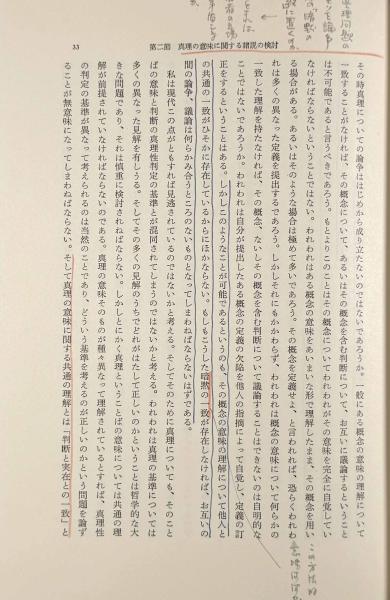 33　第二節　真理の意味に関する諸説の検討
その時真理についての論争ははじめから成り立たないのではないであろうか。一般にある概念の意味の理解について
一致することがなければ、その概念について、あるいはその概念を含む判断について、お互いに議論するということ
は不可能であると言うべきであろう。もとよりこのことはその概念についてわれわれがその意味を完全に自覚してい
なければならないということではない。われわれはある概念の意味をあいまいな形で理解したまま、その概念を用い
る場合がある。あるいはそのような場合は極めて多いであろう。その概念を定義せよ、と言われれば、恐らくわれわ
れは多くの異なった定義を提出するであろう。しかしそれにもかかわらず、われわれは概念の意味について何らかの
一致した理解を持たなければ、その概念、ないしその概念を含む判断について議論することはできないのは自明的な
ことではないであろうか。われわれは自分が提出したある概念の定義の欠陥を他人の指摘によって自覚し、定義の訂
正をするということはある。しかしこのようなことが可能であるというのも、その概念の意味の理解について他人と
の共通の一致がひそかに存在しているからにほかならない。もしもこうした暗黙の一致が存在しなければ、お互いの
間の論争、議論は何らかみ合うところのないものとなってしまわねばならないはずである。
私は現代この点がともすれば見逃されているのではないかと考える。そしてそのために真理についても、そのこと
ばの意味と判断の真理性判定の基準とが混同されてしまうのではないかと考える。われわれは真理の基準については
多くの異なった見解を有しうる。そしてその多くの見解のうちでどれがはたして正しいのかということは哲学的な大
きな問題であり、それは慎重に検討されねばならない。しかしとにかく真理ということばの意味については共通の理
解が前提されていなければならないのである。真理の意味そのものが種々異なって理解されているとすれば、真理性
の判定の基準が異なって考えられるのは当然のことであり、どういう基準を考えるのが正しいのかという問題を論ず
ることが無意味になってしまわねばならない。そして真理の意味に関する共通の理解とは「判断と実在との一致」と